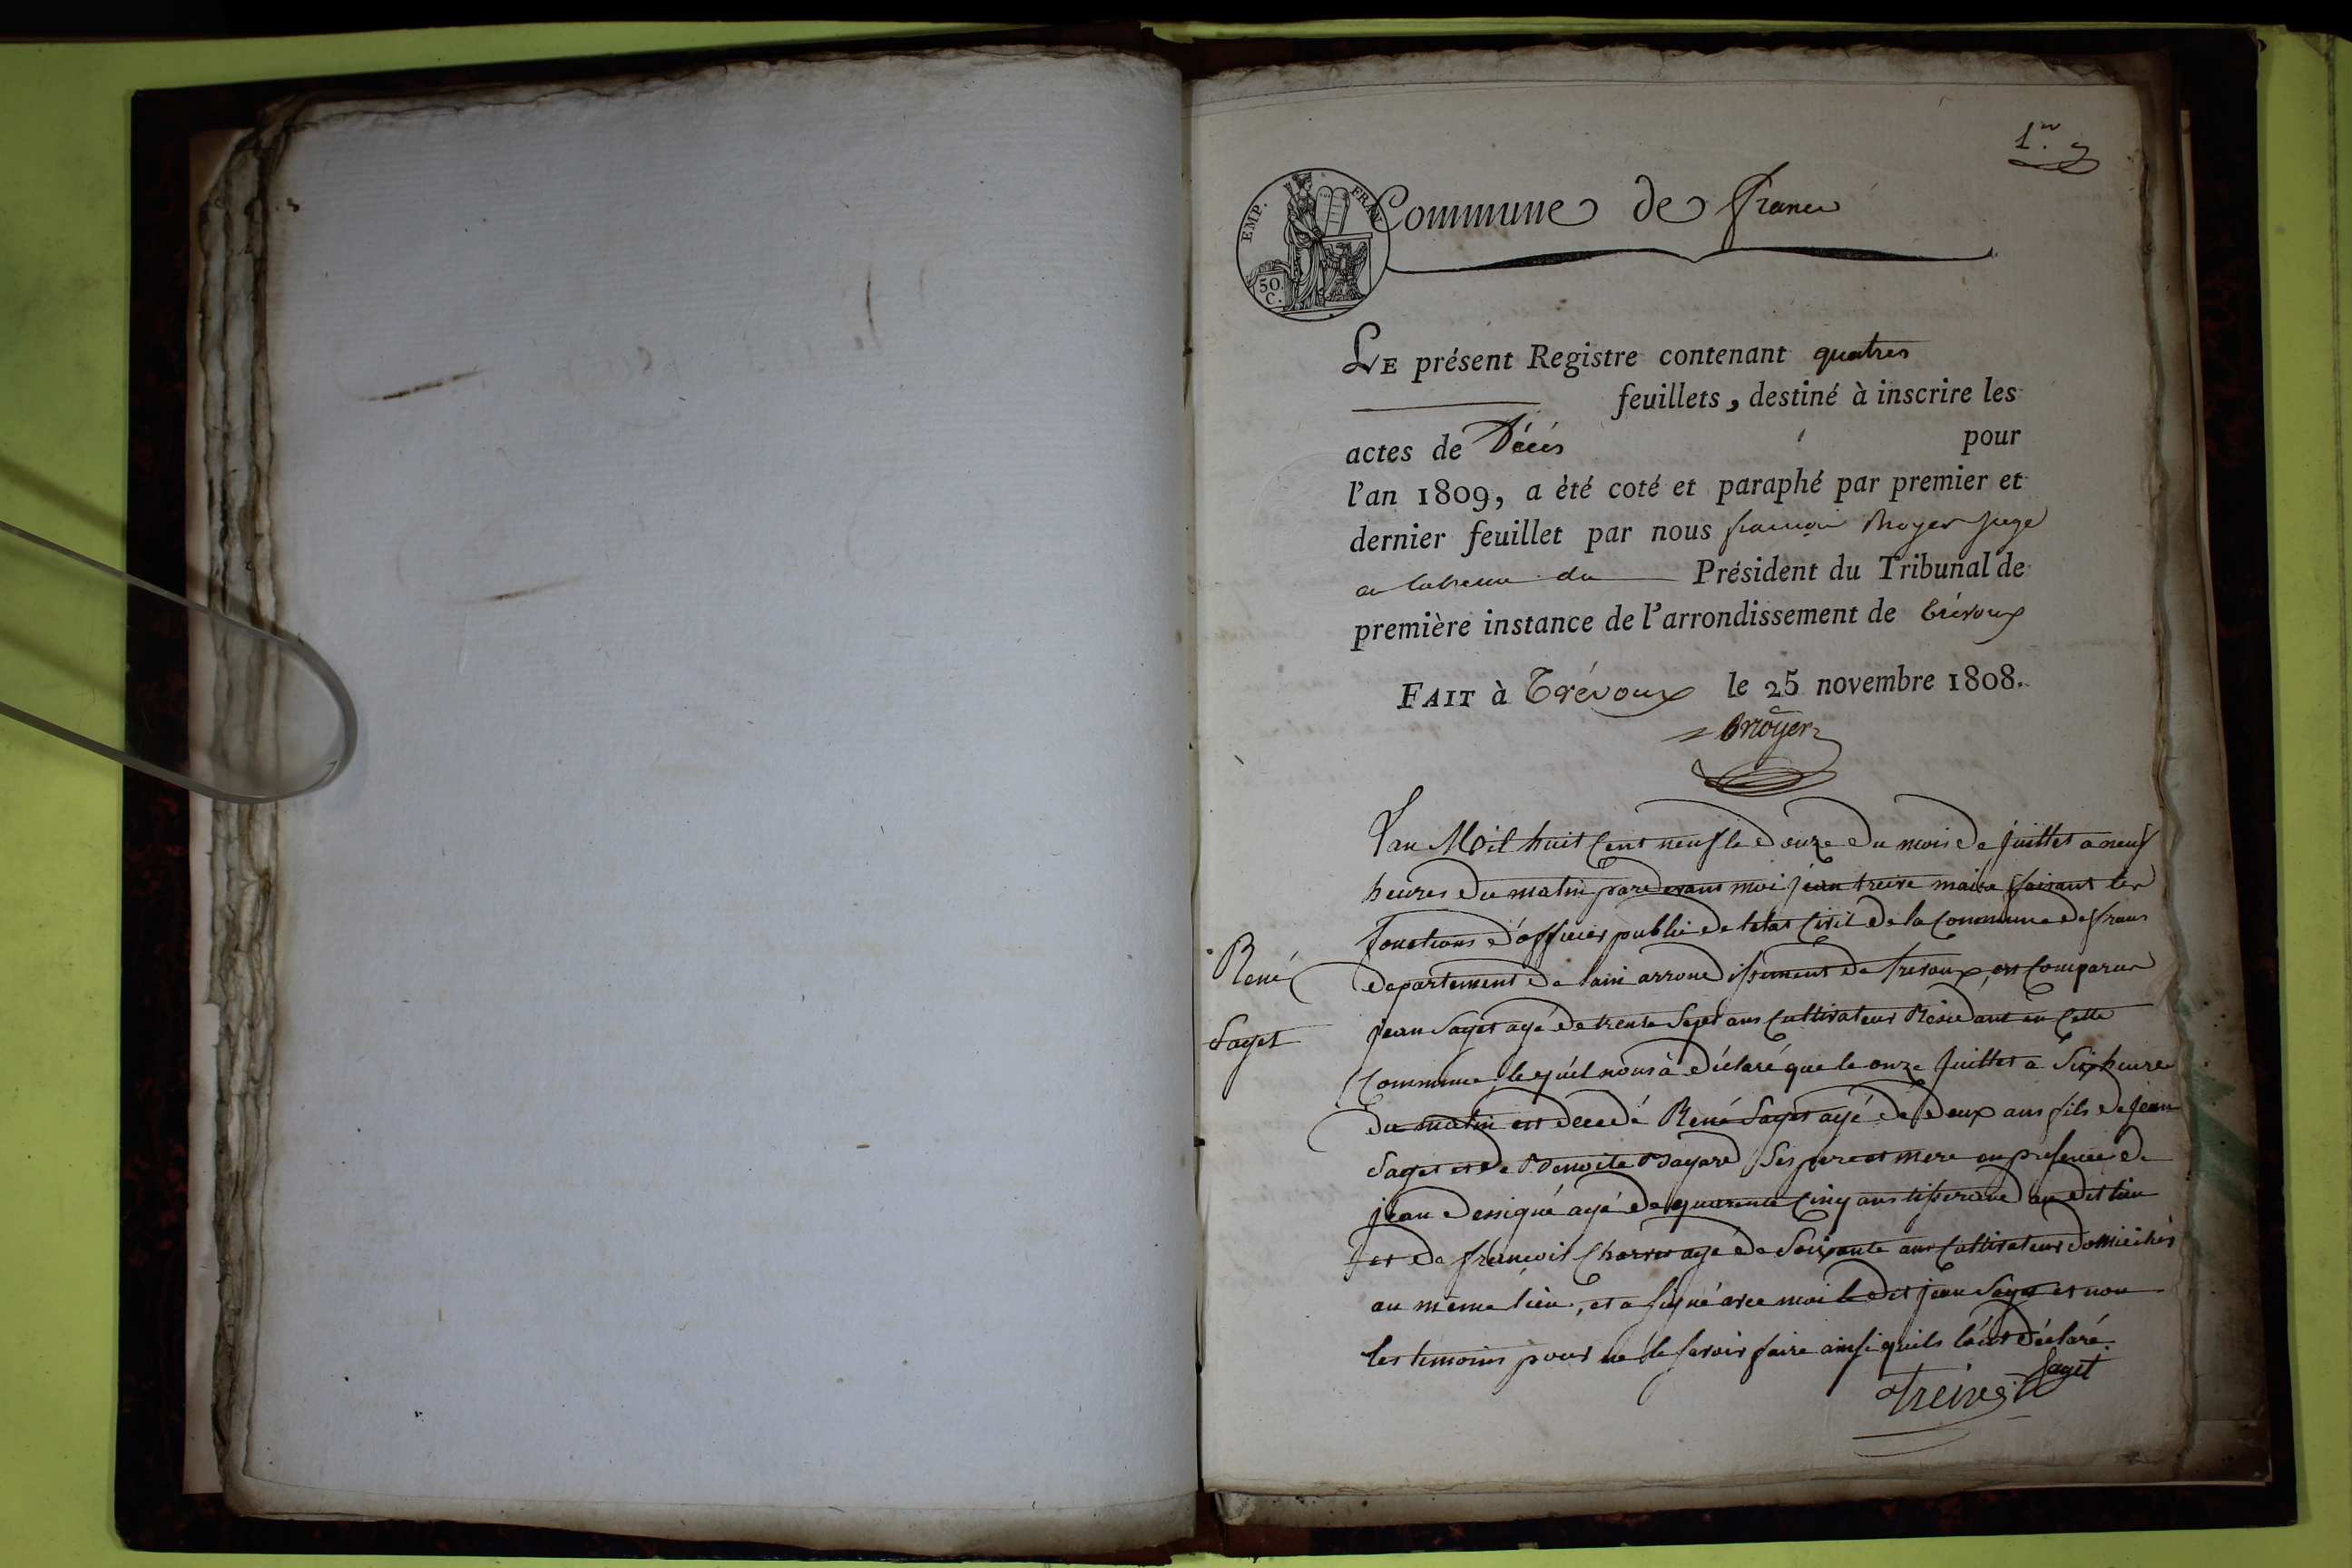 1er
EMP. FRAN.
50 C.
Commune de frans
LE présent Registre contenant quatres
feuillets, destiné à inscrire les
actes de Décés pour
l'an 1809, a été coté et paraphé par premier et
dernier feuillet par nous françois Broyer juge
Président du Tribunal de
première instance de l'arrondissement de trévoux
FAIT à Trévoux le 25 novembre 1808.
Broyer
René
Saget
L'an Mil huit Cent neuf le douze du mois de juillet a neuf
heures du matin pardevant moi jean treive maire faisant les
fonctions d'officier public de letat Civil de la Commune de frans
departement de lain arrondissement de trevoux, est Comparu
jean Saget agé de trente Sept ans Cultivateur Residant en Cette
Commune, lequel nous à déclaré que le onze Juillet a Six heures
du matin est décedé René Saget agé de deux ans fils de jean
Saget et de Benoite Bayard Ses pere et mere en presence de
jean dessigné agé de quarente Cinq ans tisserand au dit lieu
et de françois Charvet agé de Soixante ans Cultivateur domiciliés
au même lieu, et a signé avec moi le dit jean Saget et non
les temoins pour ne le savoir faire ainsi quils l'ont déclaré.
Saget
Treive